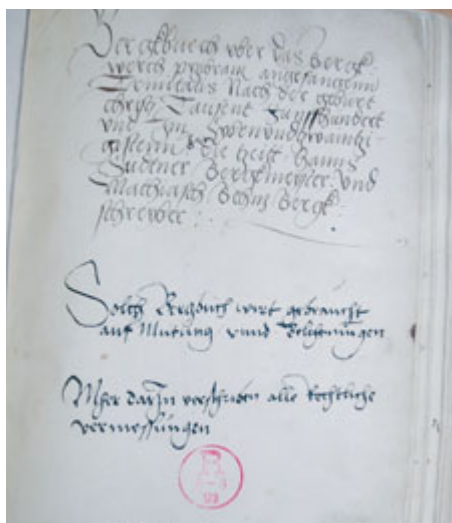 Berckbuech vber das Berck-
werch pribram angefangenn
Trinitatis Nach der geburt
christj Tausent Funffhundert
vnd Im Zwenundzwaintzi-
gistenn die zeitt Hanns
Berckmeyster vnd
Matthiasch Behm Berck-
schreyber
Solch Regbuch wirt gebraucht
auf Mutung vnnd
Mher darjn verschriben alle
vermessungen